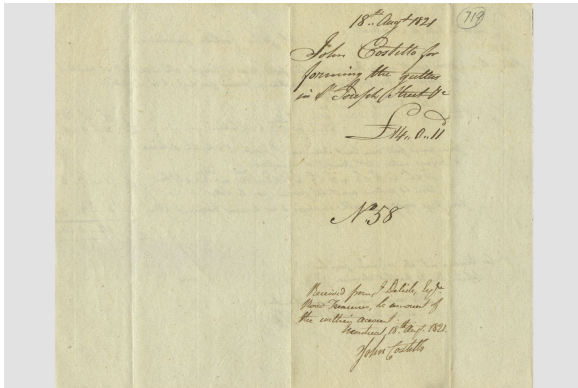 719
18th Augt 1821
John Costello for
forming the gutters
in St Joseph Street &c
£14.. 0.. 11
No 58
Received from J Delisle, Esqr
Road Treasurer, the amount of
the within account
Montreal 18th Augt 1821
John Costello